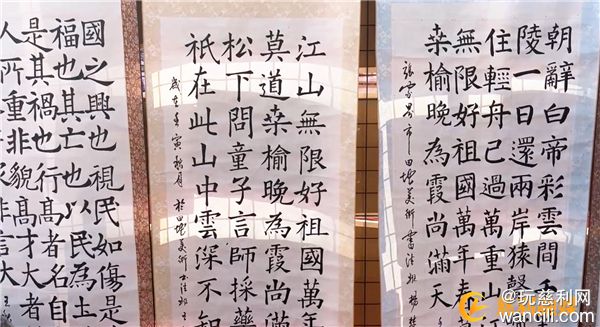 朝辭白帝彩雲間
陵一日還兩岸猿聲
住輕舟已過萬重山
無限好祖國萬年春
桑榆晚為霞尚滿天
張家界市田地美術書法班 楊
江山無限好祖國萬年
莫道桑榆晚為霞尚滿
松下問童子言師採藥
祇在此山中雲深不知
歲在壬寅秋月 於田地美術書法班 王
國之興也視民如傷是
福也其亡也以民為土
是其禍也行高者名自
人所重非貌高才大者
@玩慈利网
wancili.com